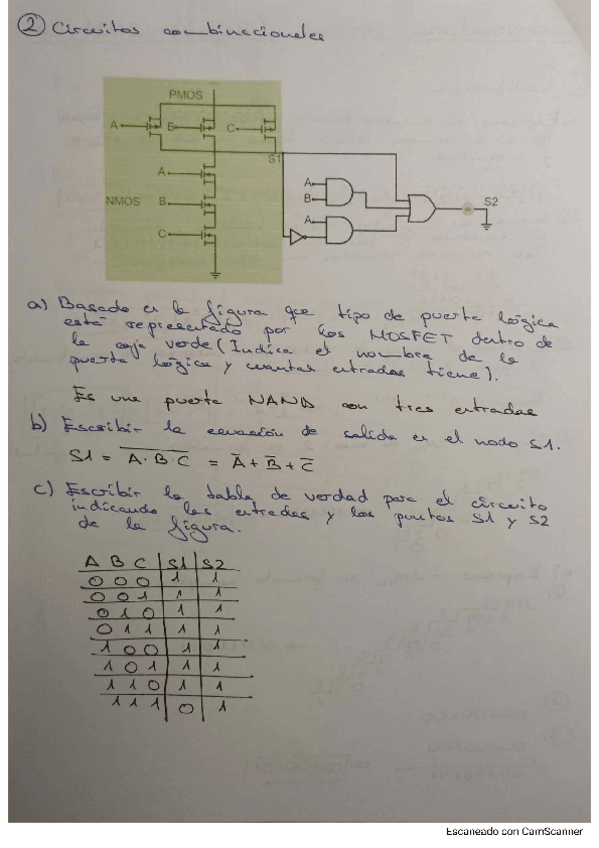 ② Circuitos combinacionales
PMOS
A B C
S1
A
NMOS B
C
A
B
A
S2
a) Basado en la figura que tipo de puerta lógica
está representado por los MOSFET dentro de
la caja verde (Indica el nombre de la
puerta lógica y cuantas entradas tiene).
Es una puerta NAND con tres entradas
b) Escribir la ecuación de salida en el nodo S1.
S1 = \overline{A·B·C} = Ā + B̄ + C̄
c) Escribir la tabla de verdad para el circuito
indicando las entradas y los puntos S1 y S2
de la figura.
A B C | S1 | S2
0 0 0 | 1 | 1
0 0 1 | 1 | 1
0 1 0 | 1 | 1
0 1 1 | 1 | 1
1 0 0 | 1 | 1
1 0 1 | 1 | 1
1 1 0 | 1 | 1
1 1 1 | 0 | 1
Escaneado con CamScanner